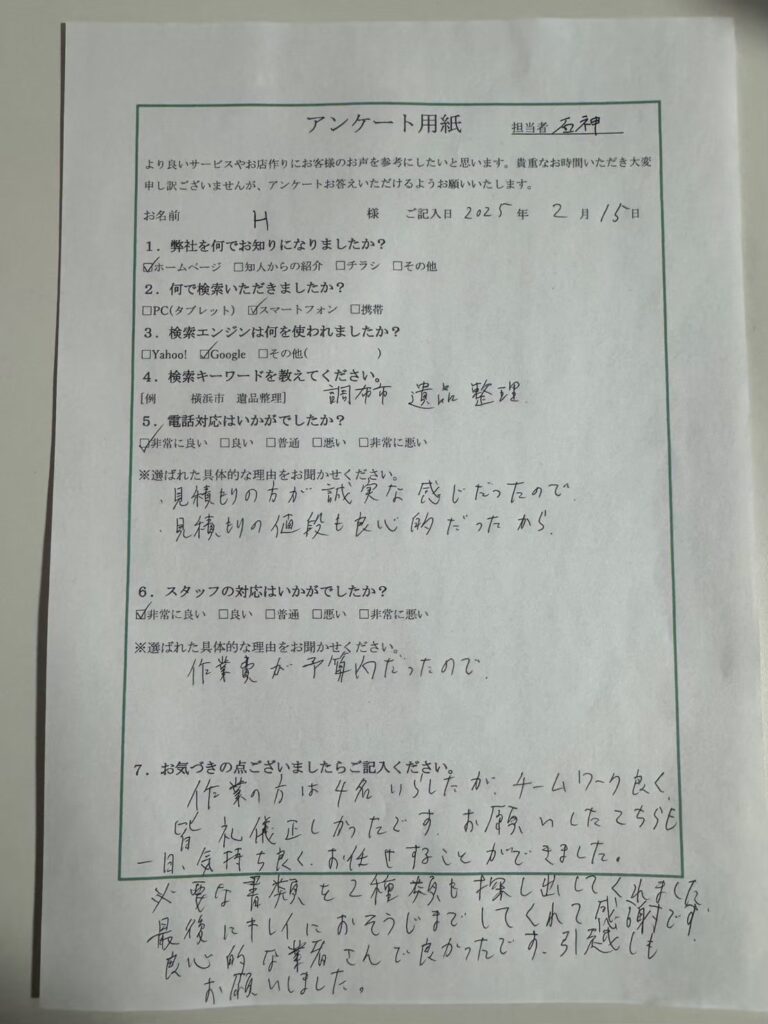 アンケート用紙 担当者 石神
より良いサービスやお店作りにお客様のお声を参考にしたいと思います。貴重なお時間いただき大変
申し訳ございませんが、アンケートお答えいただけるようお願いいたします。
お名前 H 様 ご記入日 2025 年 2 月 15 日
1．弊社を何でお知りになりましたか？
☑ホームページ □知人からの紹介 □チラシ □その他
2．何で検索いただきましたか？
□PC(タブレット) ☑スマートフォン □携帯
3．検索エンジンは何を使われましたか？
□Yahoo! ☑Google □その他( )
4．検索キーワードを教えてください。
[例 横浜市 遺品整理] 調布市 遺品 整理
5．電話対応はいかがでしたか？
☑非常に良い □良い □普通 □悪い □非常に悪い
※選ばれた具体的な理由をお聞かせください。
・見積もりの方が誠実な感じだったので
・見積もりの値段も良心的だったから
6．スタッフの対応はいかがでしたか？
☑非常に良い □良い □普通 □悪い □非常に悪い
※選ばれた具体的な理由をお聞かせください。
作業費が予算内だったので
7．お気づきの点ございましたらご記入ください。
作業の方は4名いらしたが、チームワーク良く、
皆 礼儀正しかったです。お願いしたこちらも
一日、気持ち良く、お任せすることができました。
必要な書類を2種類も探し出してくれました。
最後にキレイにおそうじまでしてくれて感謝です。
良心的な業者さんで良かったです。
お願いしました。